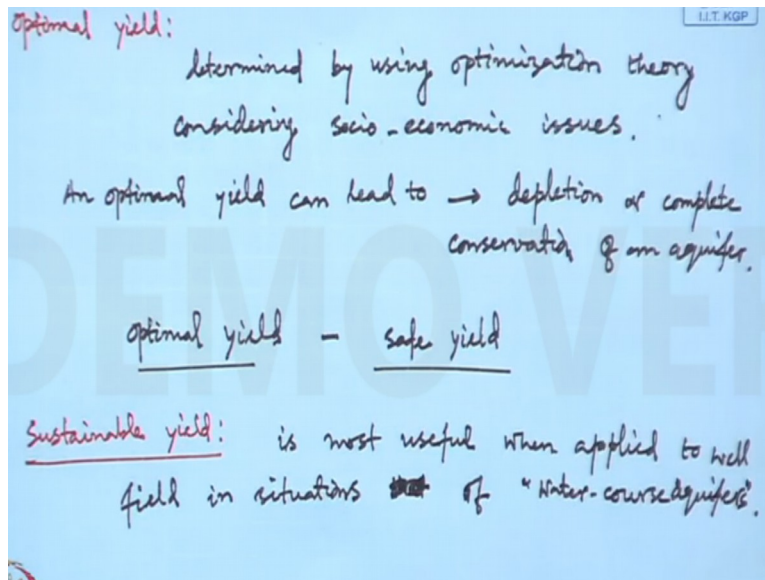 Optimal yield:
I.I.T. KGP
determined by using optimization theory
considering socio-economic issues.
An optimal yield can lead to → depletion or complete
conservation of an aquifer.
DEMO VER
optimal yield - safe yield
Sustainable yield: is most useful when applied to well
field in situations of "Water-course aquifers".